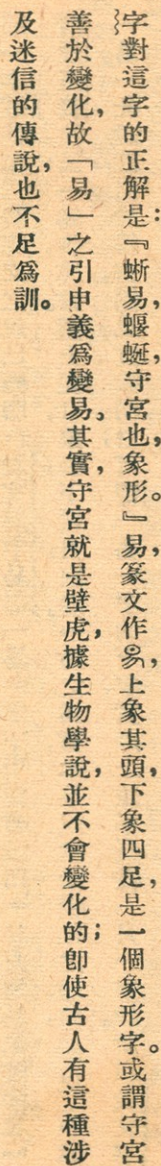 字對這字的正解是：『蜥易，蝘蜓，守宮也，象形。』易，篆文作，上象其頭，下象四足，是一個象形字。或謂守宮
善於變化，故「易」之引申義爲變易。其實，守宮就是壁虎，據生物學說，並不會變化的；卽使古人有這種涉
及迷信的傳說，也不足爲訓。